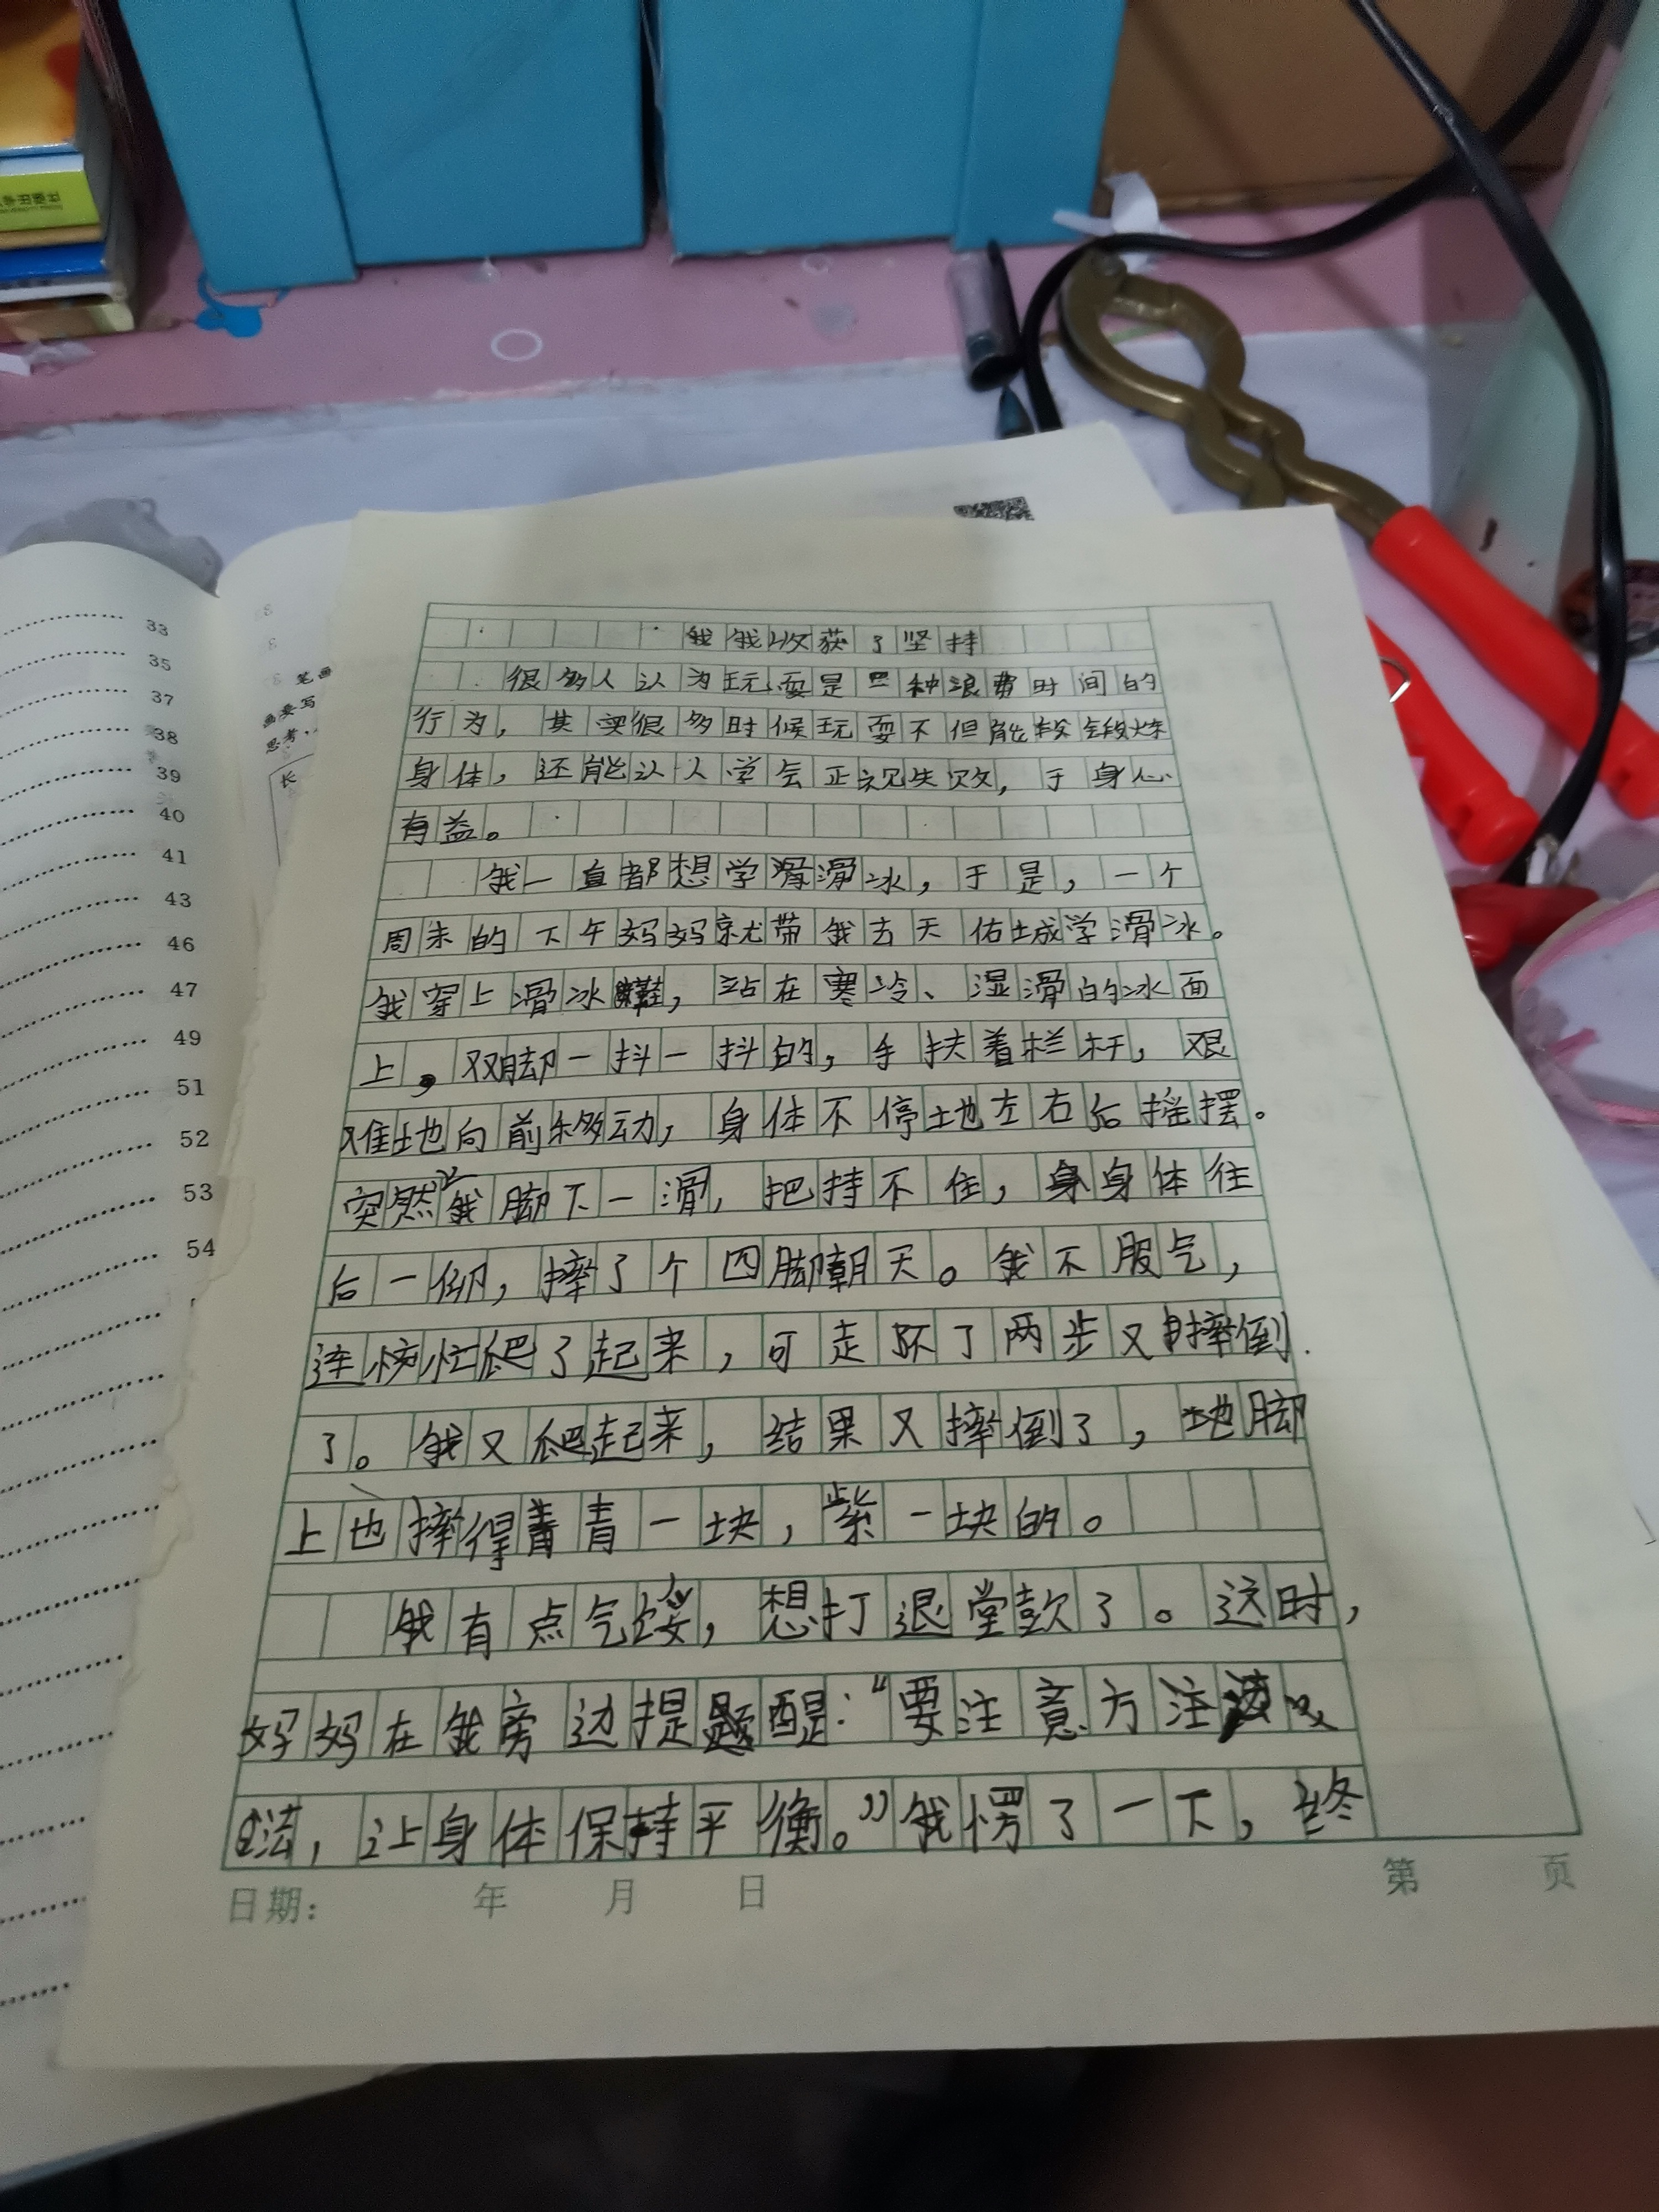 33
35
37
38
39
40
41
43
46
47
49
51
52
53
54
笔画
画要写
思考,
长
我收获了坚持
很多人认为玩耍是一种浪费时间的
行为，其实很多时候玩耍不但能锻炼
身体，还能让人学会正视失败，于身心
有益。
我一直都想学滑冰，于是，一个
周末的下午妈妈就带我去天佑城学滑冰。
我穿上滑冰鞋，站在寒冷、湿滑的冰面
上，双脚一抖一抖的，手扶着栏杆，艰
难地向前移动，身体不停地左右后摇摆。
突然，我脚下一滑，把持不住，身体往
后一仰，摔了个四脚朝天。我不服气，
连忙爬了起来，可走了两步又摔倒
了。我又爬起来，结果又摔倒了，脚
上也摔得青一块，紫一块的。
我有点气馁，想打退堂鼓了。这时，
妈妈在我旁边提醒：“要注意方
法，让身体保持平衡。”我愣了一下，终
日期： 年 月 日 第 页